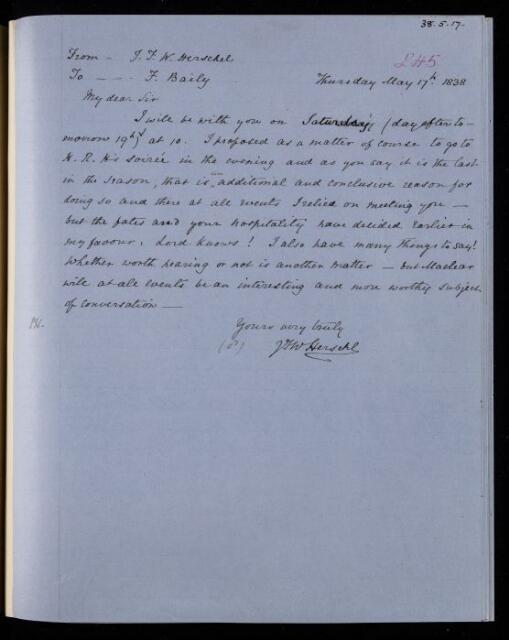 38.5.17.
From - J. F. W. Herschel
£45
To - - - F. Baily
Thursday May 17th 1838
My dear Sir
I will be with you on Saturday (day after to-
morrow 19th) at 10. I proposed as a matter of course to go to
H. R. H's soirée in the evening and as you say it is the last
in the season, that is an additional and conclusive reason for
doing so and there at all events I relied on meeting you —
but the fates and your hospitality have decided earlier in
my favour. Lord knows! I also have many things to say!
Whether worth hearing or not is another matter — but Maclear
will at all events be an interesting and more worthy subject
of conversation —
Yours very truly
JFW Herschel